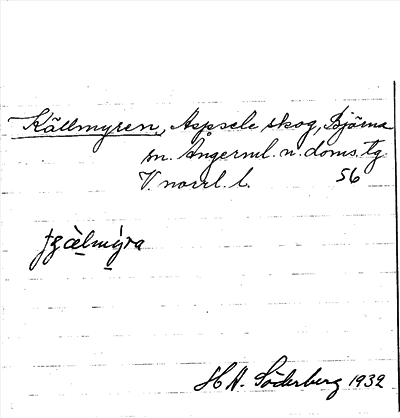 Källmyren, Aspsele skog, Björna
sn. Ångerml. n. doms. tg.
V. norrl. l. 56
tjæ̀lmýra
H. A. Söderberg 1932